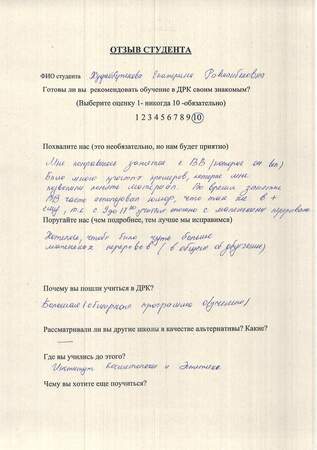 ОТЗЫВ СТУДЕНТА
ФИО студента Екатерина
Готовы ли вы рекомендовать обучение в ДРК своим знакомым?
(Выберите оценку 1- никогда 10 -обязательно)
1 2 3 4 5 6 7 8 9 10
Похвалите нас (это необязательно, но нам будет приятно)
Мне понравились занятия с ВВ (которые он вел)
Было много участия примеров, которые мне
позволили понять материал. Во время занятия
ВВ часто юмор, что так же в +
с 9 до 17 00 учиться с маленькими перерывами
Поругайте нас (чем подробнее, тем лучше мы исправимся)
Хотелось, чтобы было чуть больше
маленьких перерывов (в общем об обучении)
Почему вы пошли учиться в ДРК?
Большая (обширная программа обучения)
Рассматривали ли вы другие школы в качестве альтернативы? Какие?
—
Где вы учились до этого?
Институт Косметологии и Эстетики
Чему вы хотите еще поучиться?